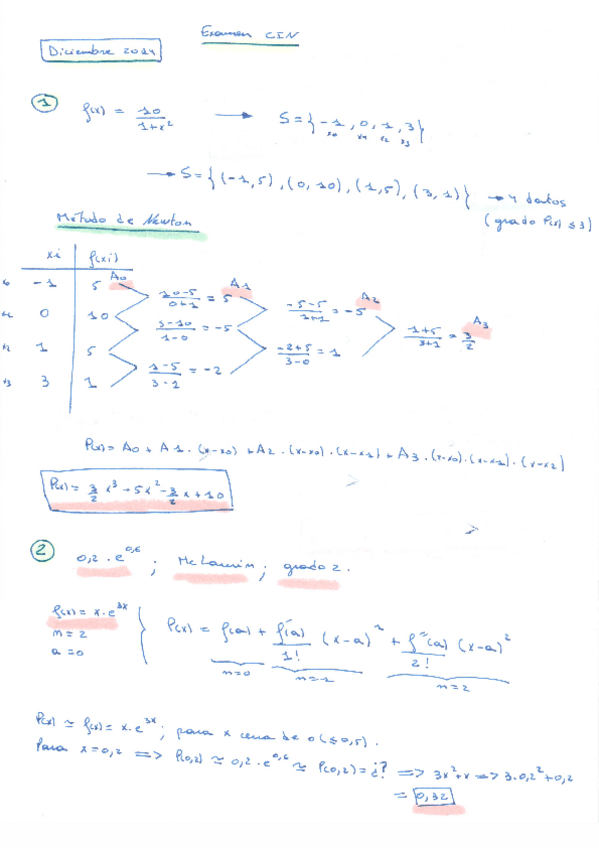 Examen CIN
Diciembre 2014
1 f(x) = 10/(1+x²) → S = {-1, 0, 1, 3}
x0 x1 x2 x3
→ S = {(-1,5), (0,10), (1,5), (3,1)} → 4 datos
(grado P(x) ≤ 3)
Método de Newton
xi f(xi)
-1 5 A0
(10-5)/(0+1) = 5 A1
0 10 (-5-5)/(1+1) = -5 A2
(5-10)/(1-0) = -5 (1+5)/(3+1) = 3/2 A3
1 5 (-2+5)/(3-0) = 1
(1-5)/(3-1) = -2
3 1
P(x) = A0 + A1·(x-x0) + A2·(x-x0)·(x-x1) + A3·(x-x0)·(x-x1)·(x-x2)
P(x) = 3/2 x³ - 5x² - 3/2 x + 10
2 0,2·e^0,6 ; McLaurin ; grado 2.
f(x) = x·e^3x
n = 2
a = 0
P(x) = f(a) + f'(a)/1! (x-a) + f''(a)/2! (x-a)²
n=0 n=1 n=2
P(x) ≃ f(x) = x·e^3x ; para x cerca de 0 (≤ 0,5).
Para x = 0,2 => P(0,2) ≃ 0,2·e^0,6 ≃ P(0,2) = ¿? => 3x²+x => 3·0,2²+0,2
= 0,32